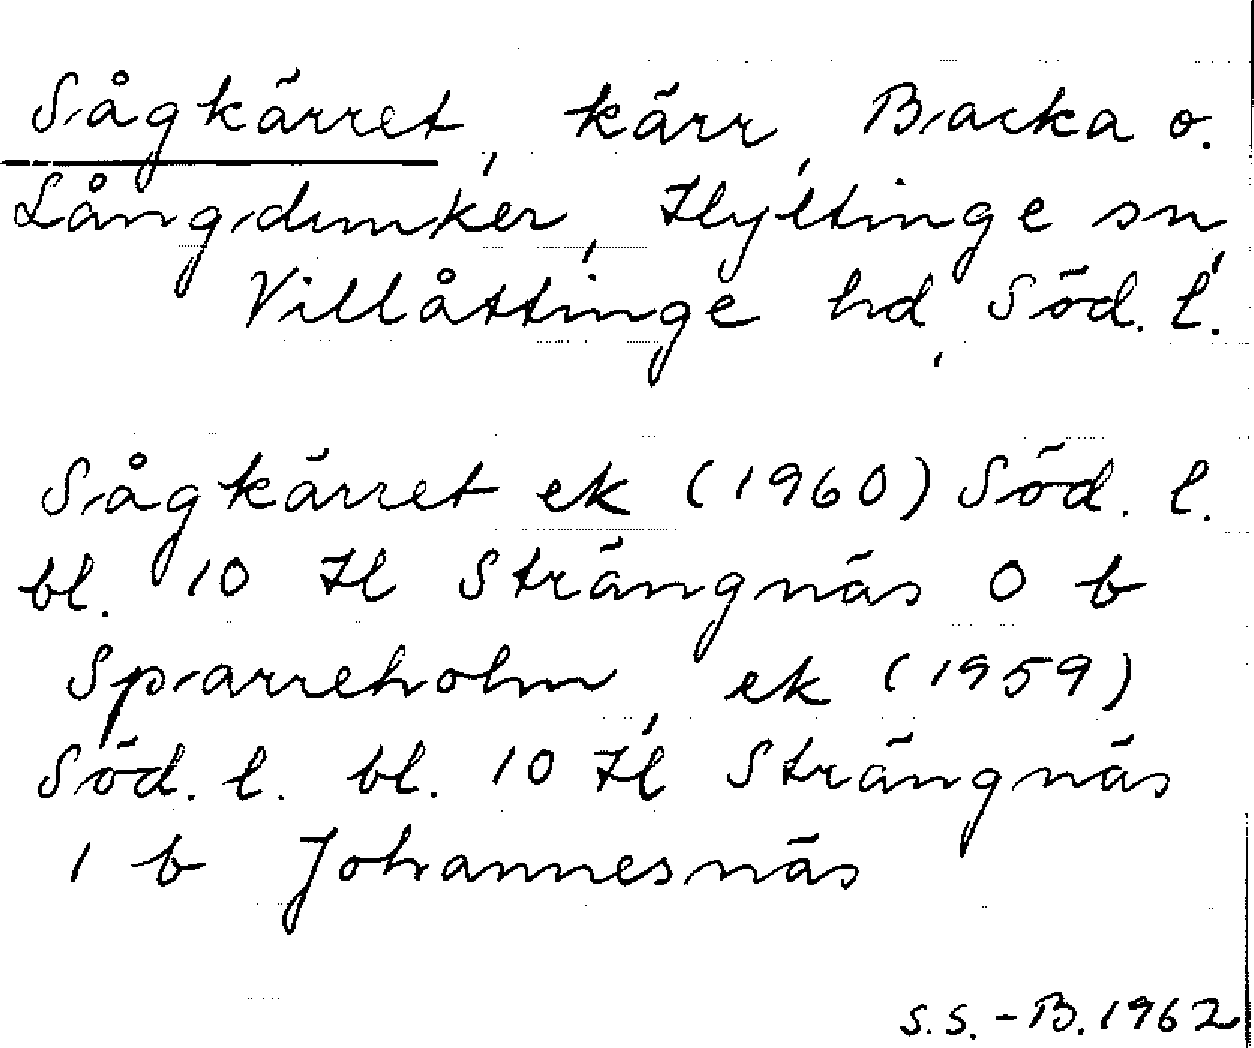 Sågkärret, kärr, Backa o.
Långdunker, Hyltinge sn,
Villåttinge hd, Söd. l.
Sågkärret ek (1960) Söd. l.
bl. 10 H Strängnäs 0 b
Sparreholm, ek (1959)
Söd. l. bl. 10 H Strängnäs
1 b Johannesnäs
S.S.-B. 1962